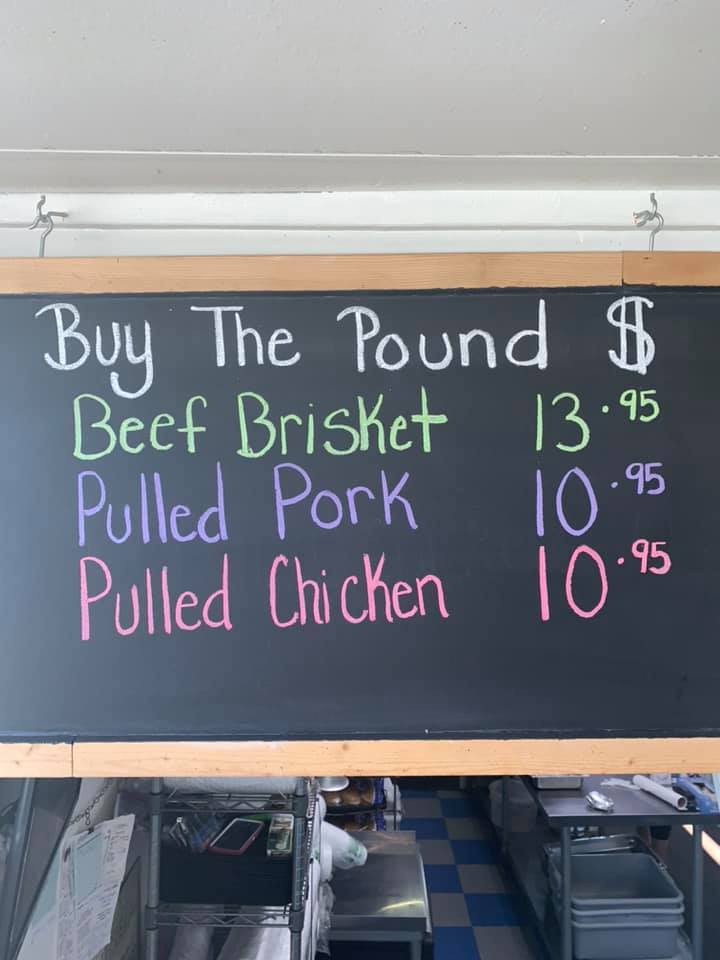 Buy The Pound $
Beef Brisket 13.95
Pulled Pork 10.95
Pulled Chicken 10.95